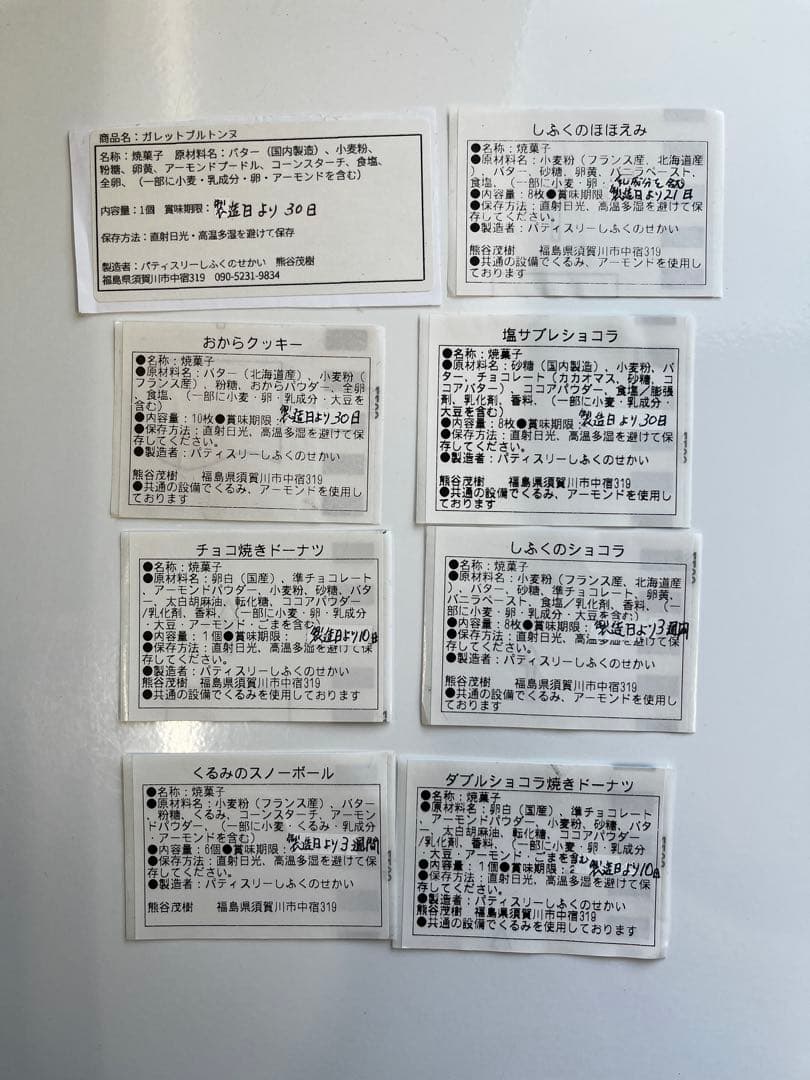 商品名：ガレットブルトンヌ
名称：焼菓子　原材料名：バター（国内製造）、小麦粉、
粉糖、卵黄、アーモンドプードル、コーンスターチ、食塩、
全卵、（一部に小麦・乳成分・卵・アーモンドを含む）
内容量：1個　賞味期限：製造日より30日
保存方法：直射日光・高温多湿を避けて保存
製造者：パティスリーしふくのせかい　熊谷茂樹
福島県須賀川市中宿319　090-5231-9834
しふくのほほえみ
●名称：焼菓子
●原材料名：小麦粉（フランス産、北海道産
）、バター、砂糖、卵黄、バニラペースト、
食塩、（一部に小麦・卵・乳成分を含む
●内容量：8枚●賞味期限：製造日より21日
●保存方法：直射日光、高温多湿を避けて保
存してください。
●製造者：パティスリーしふくのせかい
熊谷茂樹　福島県須賀川市中宿319
●共通の設備でくるみ、アーモンドを使用し
ております
おからクッキー
●名称：焼菓子
●原材料名：バター（北海道産）、小麦粉（
フランス産）、粉糖、おからパウダー、全卵
、食塩、（一部に小麦・卵・乳成分・大豆を
含む）
●内容量：10枚●賞味期限：製造日より30日
●保存方法：直射日光、高温多湿を避けて保
存してください。
●製造者：パティスリーしふくのせかい
熊谷茂樹　福島県須賀川市中宿319
●共通の設備でくるみ、アーモンドを使用し
ております
塩サブレショコラ
●名称：焼菓子
●原材料名：砂糖（国内製造）、小麦粉、バ
ター、チョコレート（カカオマス、砂糖、コ
コアバター）、ココアパウダー、食塩／膨張
剤、乳化剤、香料、（一部に小麦・乳成分・
大豆を含む）
●内容量：8枚●賞味期限：製造日より30日
●保存方法：直射日光、高温多湿を避けて保
存してください。
●製造者：パティスリーしふくのせかい
熊谷茂樹　福島県須賀川市中宿319
●共通の設備でくるみ、アーモンドを使用し
ております
チョコ焼きドーナツ
●名称：焼菓子
●原材料名：卵白（国産）、準チョコレート
、アーモンドパウダー、小麦粉、砂糖、バタ
ー、太白胡麻油、転化糖、ココアパウダー
/乳化剤、香料、（一部に小麦・卵・乳成分
・大豆・アーモンド・ごまを含む）
●内容量：1個●賞味期限：製造日より10日
●保存方法：直射日光、高温多湿を避けて保
存してください。
●製造者：パティスリーしふくのせかい
熊谷茂樹　福島県須賀川市中宿319
●共通の設備でくるみを使用しております
しふくのショコラ
●名称：焼菓子
●原材料名：小麦粉（フランス産、北海道産
）、バター、砂糖、準チョコレート、卵黄、
バニラペースト、食塩／乳化剤、香料、（一
部に小麦・卵・乳成分・大豆を含む）
●内容量：8枚●賞味期限：製造日より3週間
●保存方法：直射日光、高温多湿を避けて保
存してください。
●製造者：パティスリーしふくのせかい
熊谷茂樹　福島県須賀川市中宿319
●共通の設備でくるみ、アーモンドを使用し
ております
くるみのスノーボール
●名称：焼菓子
●原材料名：小麦粉（フランス産）、バター
、粉糖、くるみ、コーンスターチ、アーモン
ドパウダー、（一部に小麦・くるみ・乳成分
・アーモンドを含む）
●内容量：6個●賞味期限：製造日より3週間
●保存方法：直射日光、高温多湿を避けて保
存してください。
●製造者：パティスリーしふくのせかい
熊谷茂樹　福島県須賀川市中宿319
ダブルショコラ焼きドーナツ
●名称：焼菓子
●原材料名：卵白（国産）、準チョコレート
、アーモンドパウダー、小麦粉、砂糖、バタ
ー、太白胡麻油、転化糖、ココアパウダー
/乳化剤、香料、（一部に小麦・卵・乳成分
・大豆・アーモンド・ごまを含む
●内容量：1個●賞味期限：2 製造日より10日
●保存方法：直射日光、高温多湿を避けて保
存してください。
●製造者：パティスリーしふくのせかい
熊谷茂樹　福島県須賀川市中宿319
●共通の設備でくるみを使用しております